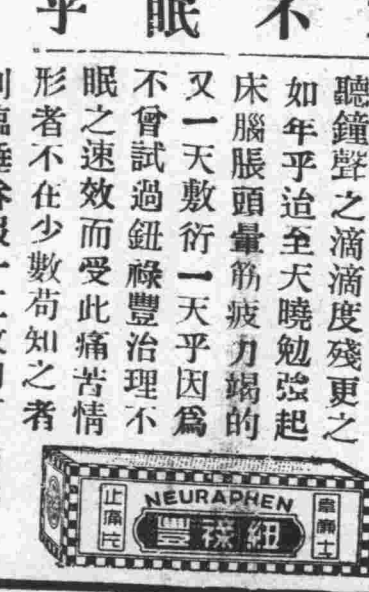 不眠乎
聽鐘聲之滴滴度殘更之
如年乎迨至天曉勉強起
床腦脹頭暈筋疲力竭的
又一天敷衍一天乎因爲
不曾試過鈕祿豐治理不
眠之速效而受此痛苦情
形者不在少數苟知之者
NEURAPHEN
韋廉士
鈕祿豐
止痛片